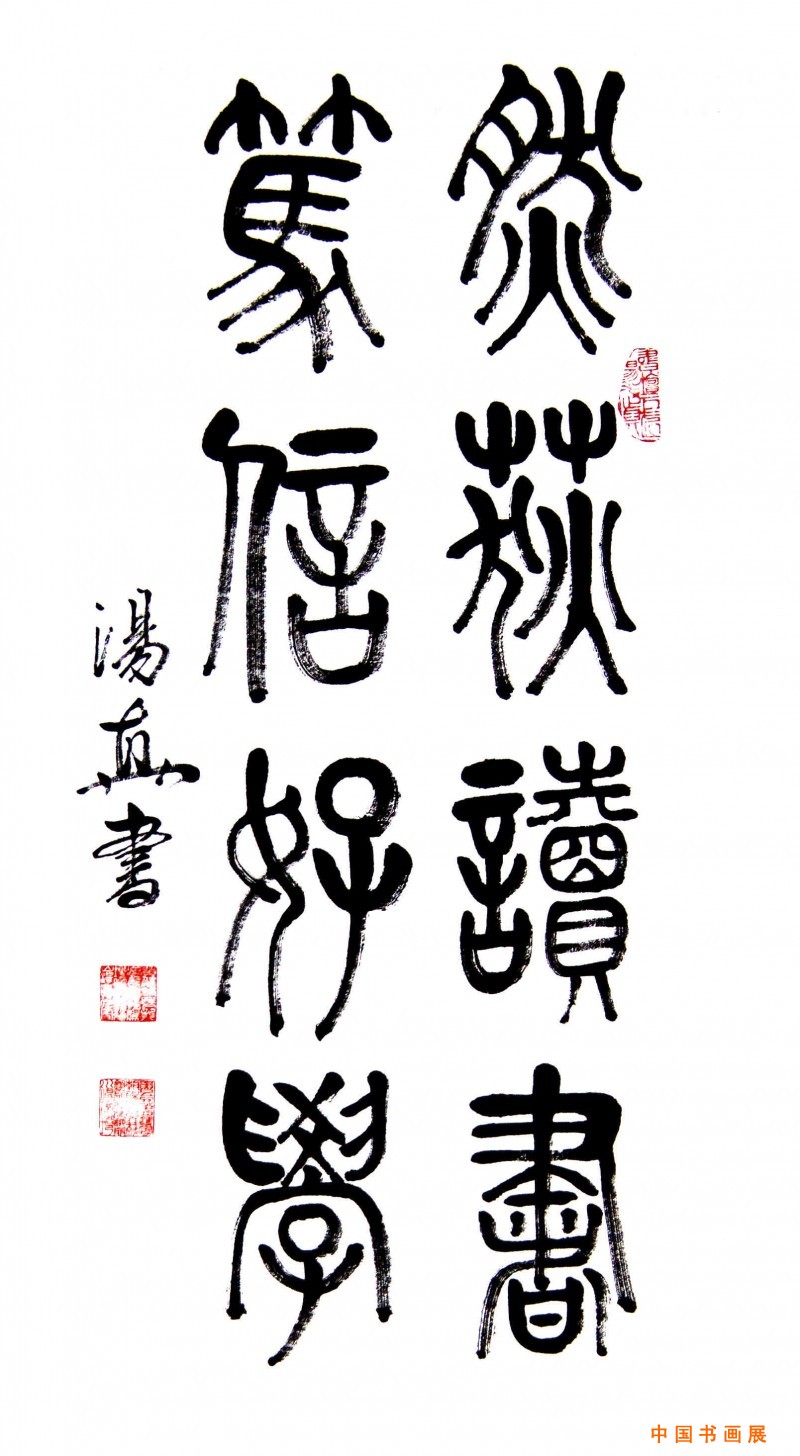 然荻讀書
篤信好學
湯真書
中国书画展